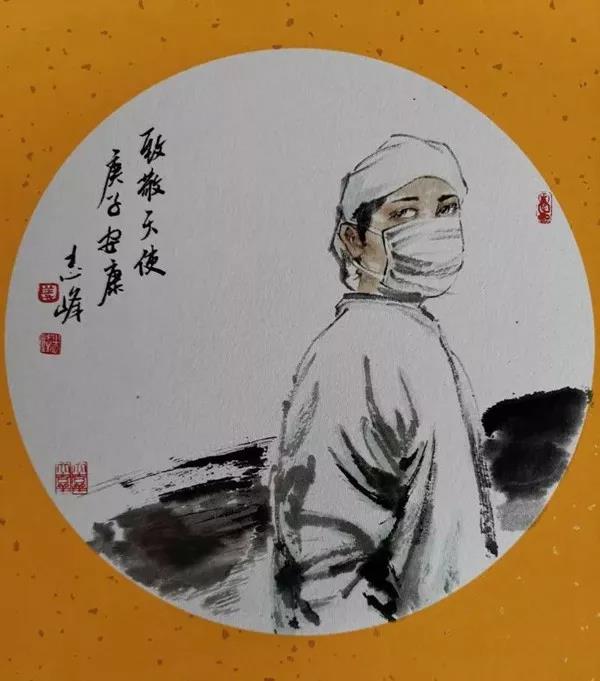 致敬天使
庚子安康
志峰